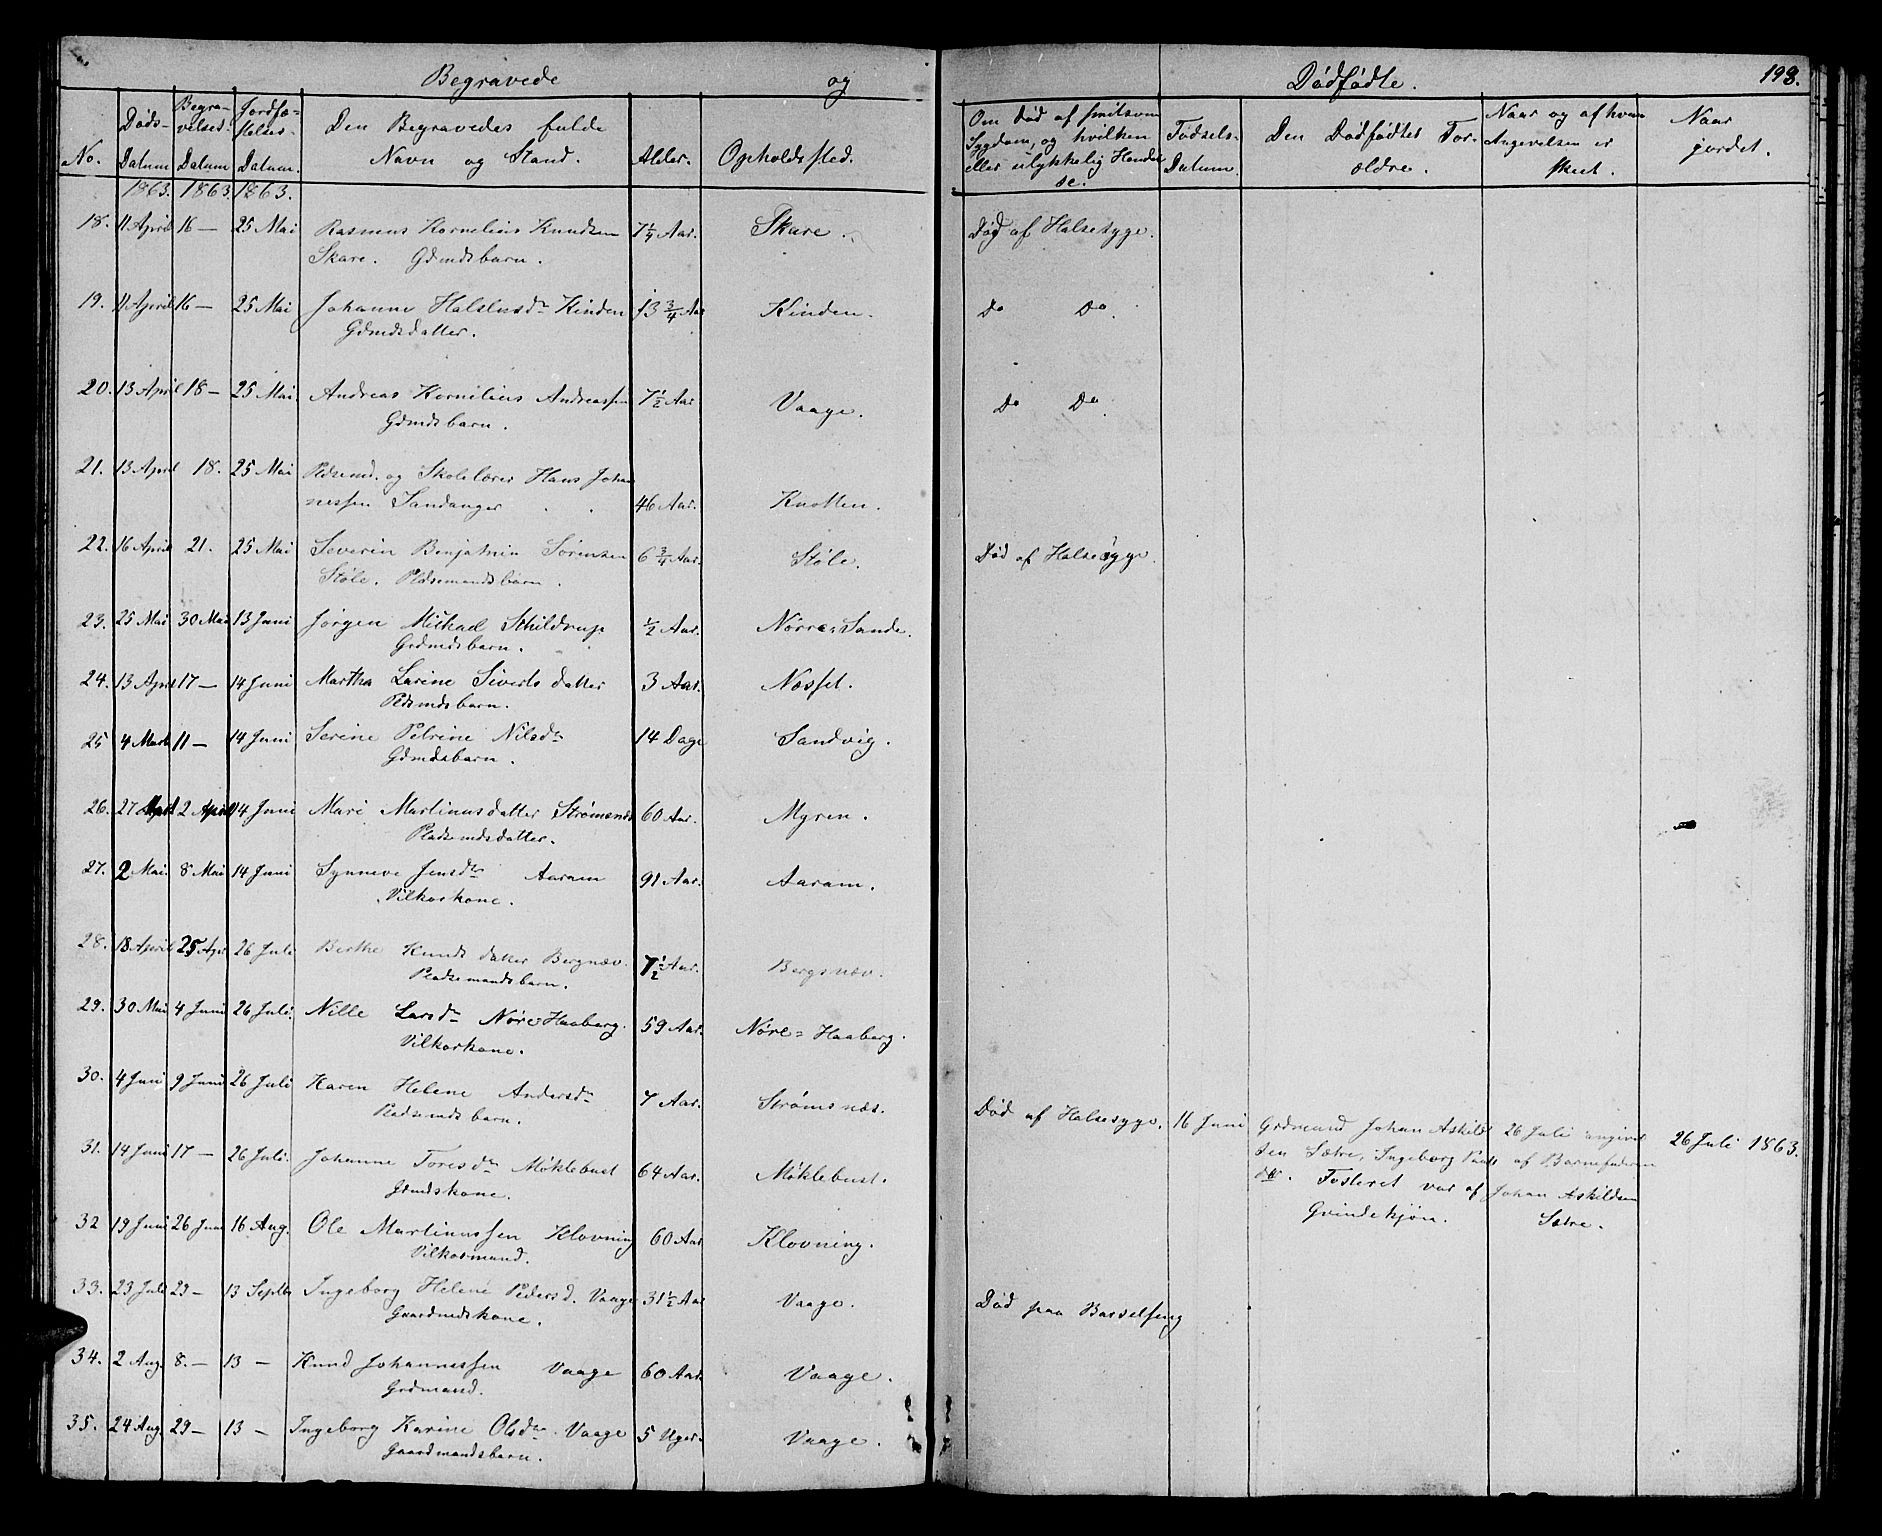 Begravede og Dødfødte. 193.
No. Døds-Datum Begravelses-Datum Jordfæstelses-Datum. Den Begravedes fulde Navn og Stand. Alder. Opholdssted. Om død af smitsom Sygdom, og hvilken eller ulykkelig Hændelse. Fødsels-Datum. Den Dødfødtes Forældre. Naar og af hvem Angivelsen er skeet. Naar jordet.
1863. 1863. 1863.
18. 11 April 16 — 25 Mai Rasmus Kornelius Knudsen 7 1/4 Aar. Skare. Død af Halsesyge.
Skare. Gdmdsbarn.
19. 11 April 16 — 25 Mai Johanne Halslusdr Kinden 13 3/4 Aar Kinden. Do Do.
Gdmdsdatter.
20. 13 April 18 — 25 Mai. Andreas Kornelius Andreassen 7 1/2 Aar Vaage. Do Do.
Gdmdsbarn.
21. 13 April 18. 25 Mai Pldsmd. og Skolelærer Hans Johan
nessen Sandanger 46 Aar. Knotten.
22. 16 April 21. 25 Mai Severin Benjamin Sørensen 6 3/4 Aar. Støle. Død af Halsesyge
Støle. Pldsemandsbarn.
23. 25 Mai 30 Mai 13 Juni Jørgen Mikael Schildrup 1/2 Aar. Nørre-Sande.
Grdmdsbarn.
24. 13 April 17 — 14 Juni Martha Larine Siverts datter 3 Aar. Næsset.
Pldsmdsbarn.
25 4 Marts 11 — 14 Juni Serine Petrine Nilsdr 14 Dage Sandvig.
Gdmdsbarn.
26. 27 2 April 14 Juni Mari Martinusdatter Strømsnæs 60 Aar. Myren.
Pladsemdsdatter.
27. 2 Mai. 8 Mai 14 Juni Synneve Jensdr Aaram 91 Aar. Aaram.
Vilkorkone.
28. 18 April 25 Apr 26 Juli Berthe Knuds datter Bergnæv. 7 1/2 Aar. Bergsnæv.
Pladsemandsbarn.
29. 30 Mai 4 Juni 26 Juli. Nille Larsdr Nøre Haaberg. 59 Aar. Nøre-Haaberg.
Vilkorkone.
30. 4 Juni 9 Juni 26 Juli Karen Helene Andersdr 7 Aar. Strømsnæs. Død af Halsesyge. 16 Juni Grdmand Johan Askild 26 Juli angivet 26 Juli 1863.
Pladsemdsbarn. sen Sætre, Ingeborg Paals af Barnefaderen
31. 14 Juni 17 — 26 Juli. Johanne Toresdr Møklebust 64 Aar. Møklebust. dtr. Fosteret var af Johan Askildsen
Gdmdskone. Qvindekjøn. Sætre.
32 19 Juni 26 Juni 16 Aug. Ole Martinussen Klovning 60 Aar Klovning.
Vilkormand.
33. 23 Juli 29 — 13 Septbr Ingeborg Helene Pedersd. Vaage 31 1/2 Aar Vaage. Død paa Barselseng
Gaardmdskone.
34. 2 Aug. 8. — 13 — Knud Johannessen Vaage 60 Aar. Vaage.
Grdmand.
35. 24 Aug. 29 — 13 — Ingeborg Karine Olsdr. Vaage 5 Uger. Vaage.
Gaardmandsbarn.